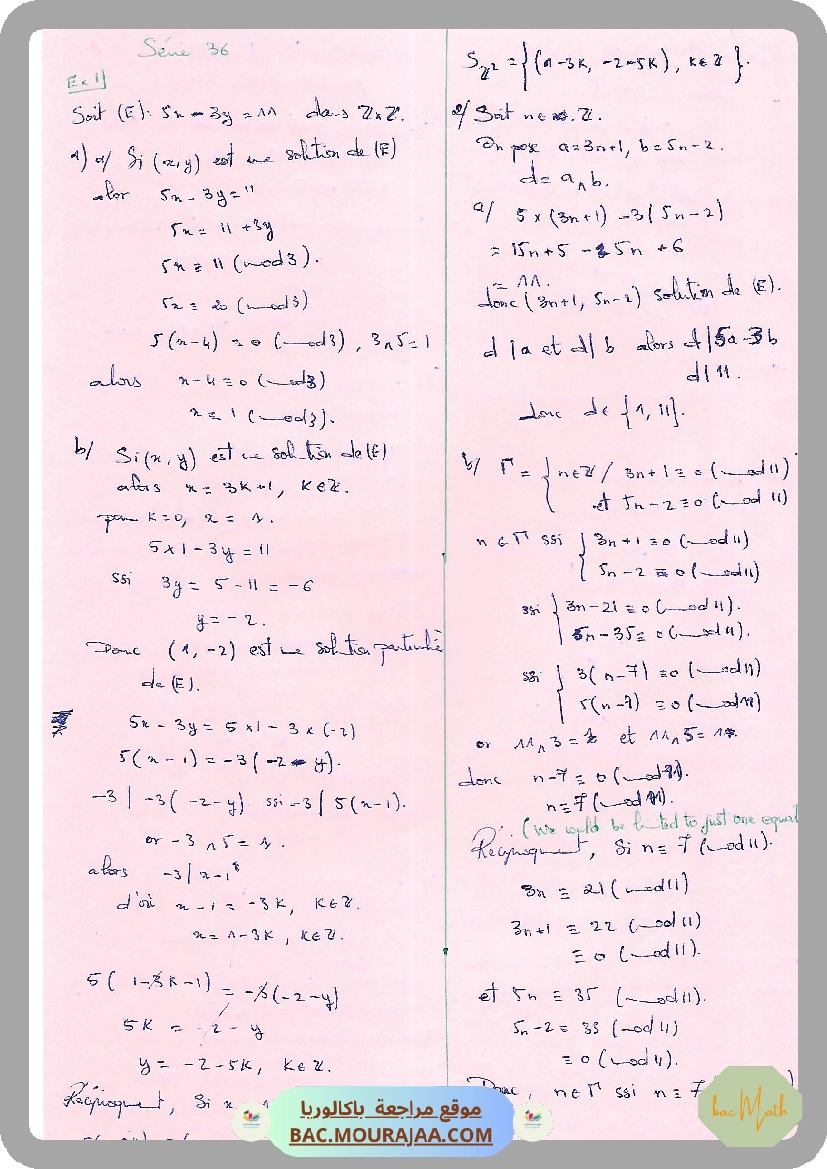 Série 36
Ex 1
Soit (E): 5x - 3y = 11 dans ℤ×ℤ.
1) a/ Si (x,y) est une solution de (E)
alors 5x - 3y = 11
5x = 11 + 3y
5x ≡ 11 (mod 3).
5x ≡ 20 (mod 3)
5(x-4) ≡ 0 (mod 3), 3∧5 = 1
alors x-4 ≡ 0 (mod 3)
x ≡ 1 (mod 3).
b/ Si (x,y) est une solution de (E)
alors x = 3K+1, K∈ℤ.
pour K=0, x = 1.
5×1 - 3y = 11
ssi 3y = 5 - 11 = -6
y = -2.
Donc (1, -2) est une solution particulière
de (E).
5x - 3y = 5×1 - 3×(-2)
5(x-1) = -3(-2-y).
-3 | -3(-2-y) ssi -3 | 5(x-1).
or -3∧5 = 1.
alors -3 | x-1
d'où x-1 = -3K, K∈ℤ.
x = 1-3K, K∈ℤ.
5(1-3K-1) = -3(-2-y)
5K = -2-y
y = -2-5K, K∈ℤ.
Réciproquement, Si x
S_ℤ² = {(1-3K, -2-5K), K∈ℤ}.
2/ Soit n∈ℤ.
On pose a=3n+1, b=5n-2.
d = a∧b.
a/ 5×(3n+1) -3(5n-2)
= 15n+5 -15n +6
= 11.
donc (3n+1, 5n-2) solution de (E).
d|a et d|b alors d|5a-3b
d|11.
donc d∈{1, 11}.
b/ Γ = { n∈ℤ / 3n+1 ≡ 0 (mod 11)
et 5n-2 ≡ 0 (mod 11)
n∈Γ ssi { 3n+1 ≡ 0 (mod 11)
5n-2 ≡ 0 (mod 11)
ssi { 3n-21 ≡ 0 (mod 11).
5n-35 ≡ 0 (mod 11).
ssi { 3(n-7) ≡ 0 (mod 11)
5(n-7) ≡ 0 (mod 11)
or 11∧3 = 1 et 11∧5 = 1.
donc n-7 ≡ 0 (mod 11).
n ≡ 7 (mod 11).
(We would be limited to just one equal
Réciproquement, Si n ≡ 7 (mod 11).
3n ≡ 21 (mod 11)
3n+1 ≡ 22 (mod 11)
≡ 0 (mod 11).
et 5n ≡ 35 (mod 11).
5n-2 ≡ 33 (mod 11)
≡ 0 (mod 11).
Donc, n∈Γ ssi n ≡ 7
موقع مراجعة باكالوريا
BAC.MOURAJAA.COM
bac Math